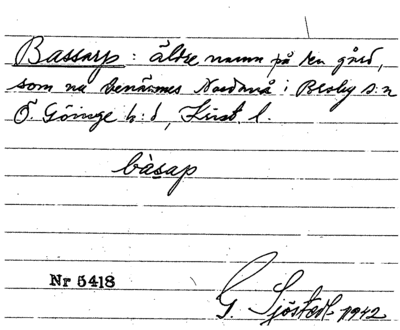 Bassarp : äldre namn på den gård,
som nu benämnes Nordanå i Broby s:n
Ö. Göinge h:d, Krist. l.
bàsap
Nr 5418
G. Sjöstedt 1942